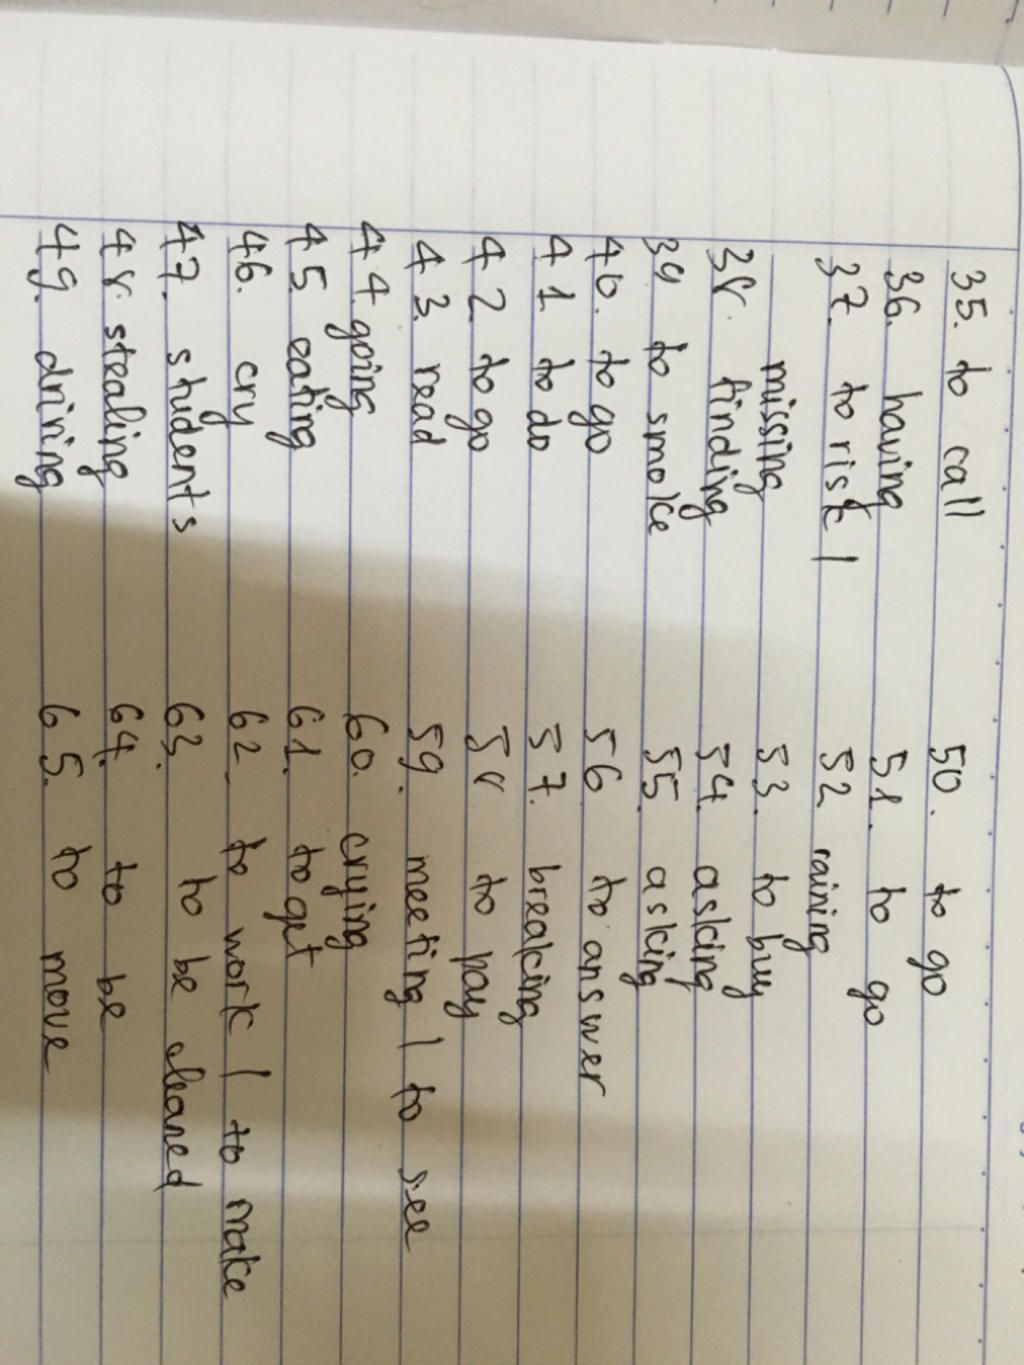 35. to call
36. having
37. to risk /
missing
38. finding
39 to smoke
40. to go
41 to do
42 to go
43 read
44 going
45 eating
46. cry
47. students
48. stealing
49. driving
50. to go
51. to go
52 raining
53. to buy
54. asking
55. asking
56 to answer
57. breaking
58 to pay
59. meeting / to see
60. crying
61. to get
62. to work / to make
63. to be cleaned
64. to be
65. to move